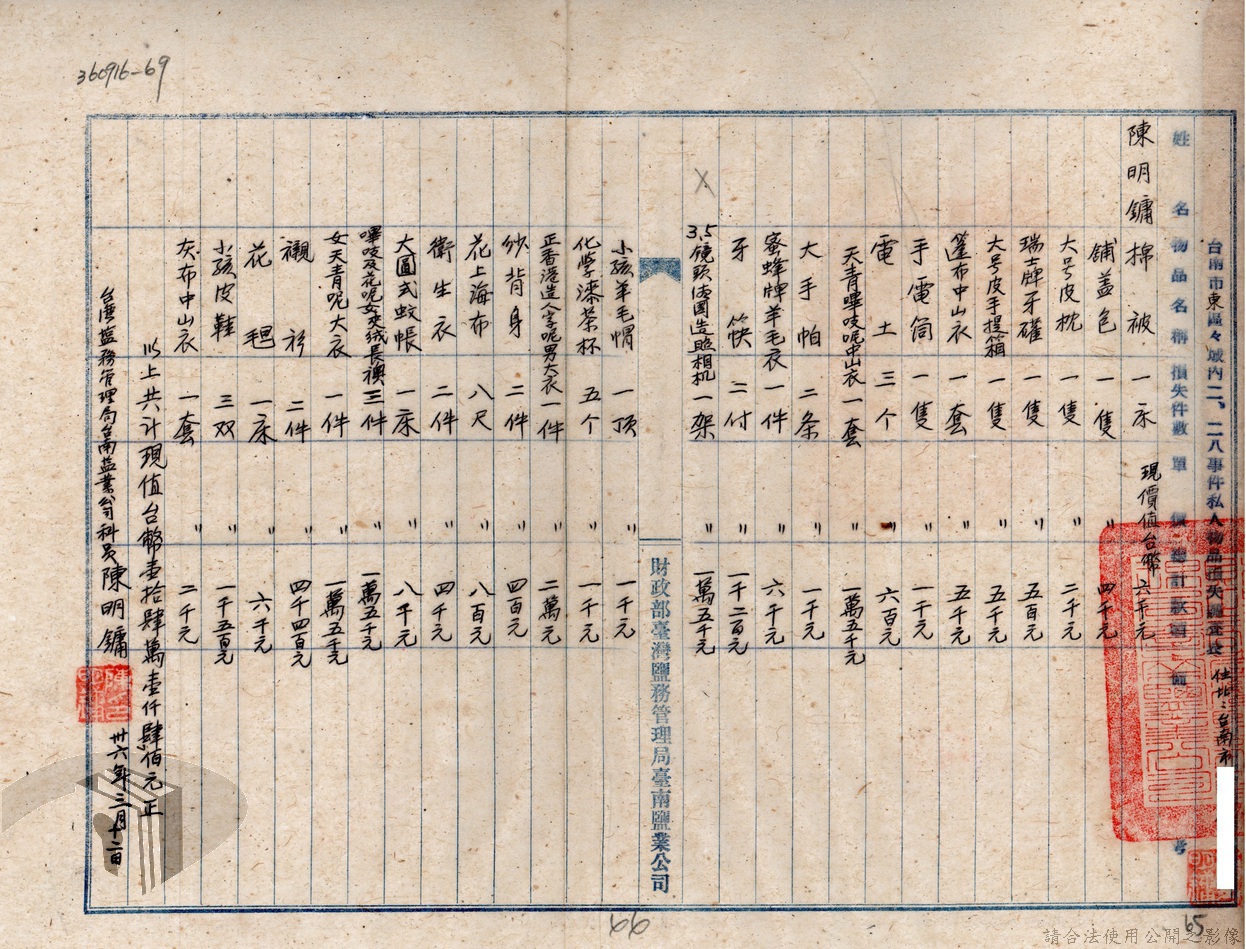 360916-69
台南市東區々域內二、二八事件私人物品損失調查表 住址:台南市
姓名 物品名稱 損失件數 單價 總計款額 備考
陳明鏞 棉被 一床 現價值台幣 六千元
舖盖包 一隻 〃 四千元
大号皮枕 一隻 〃 二千元
瑞士牌牙礶 一隻 〃 五百元
大号皮手提箱 一隻 〃 五千元
篷布中山衣 一套 〃 五千元
手電筒 一隻 〃 一千元
電土 三个 〃 六百元
天青嗶吱呢中山衣 一套 〃 一萬五千元
大手帕 二条 〃 一千元
蜜蜂牌羊毛衣 一件 〃 六千元
牙筷 二付 〃 一千二百元
3.5鏡頭法國造照相机 一架 〃 一萬五千元
財政部臺灣鹽務管理局臺南鹽業公司
小孩羊毛帽 一頂 〃 一千元
化學漆茶杯 五个 〃 一千元
正香港造人字呢男大衣 一件 〃 二萬元
紗背身 二件 〃 四百元
花上海布 八尺 〃 八百元
衛生衣 二件 〃 四千元
大圓式蚊帳 一床 〃 八千元
嗶吱及花呢女夾绒長襖 三件 〃 一萬五千元
女天青呢大衣 一件 〃 一萬五千元
襯衫 二件 〃 四千四百元
花毯 一床 〃 六千元
小孩皮鞋 三双 〃 一千五百元
灰布中山衣 一套 〃 二千元
以上共計現值台幣壹拾肆萬壹仟肆佰元正
台湾盐務管理局台南盐業公司科員 陳明鏞 卅六年三月十二日
66
65
請合法使用公開之影像